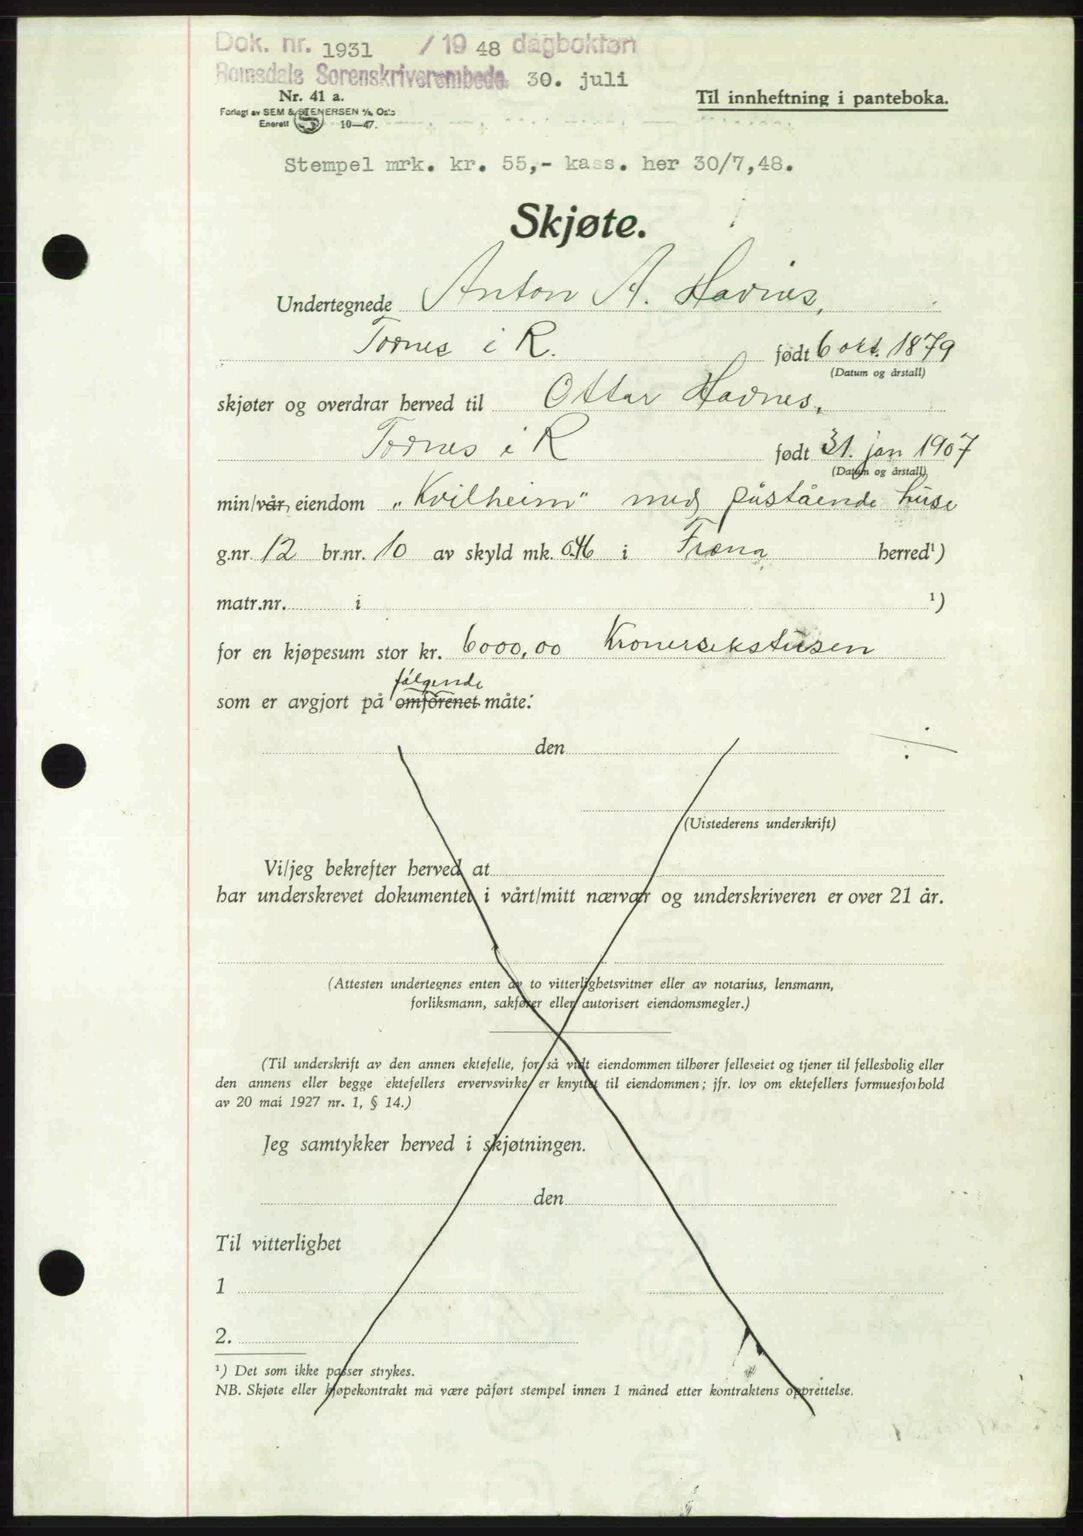 Dok. nr. 1931 / 19 48 dagbokføn
Romsdals Sorenskriverembede. 30. juli
Nr. 41 a.
Forlagt av SEM & STENERSEN A/s, Oslo
Enerett 10—47.
Til innheftning i panteboka.
Stempel mrk. kr. 55,- kass. her 30/7,48.
Skjøte.
Undertegnede Anton A. Havnes,
Tornes i R. født 6 okt. 1879
(Datum og årstall)
skjøter og overdrar herved til Ottar Havnes,
Tornes i R født 31. jan 1907
(Datum og årstall)
min/vår, eiendom „Kvilheim" med påstående huse
g.nr. 12 br.nr. 10 av skyld mk. 0.46 i Fræna herred¹)
matr.nr. i ¹)
for en kjøpesum stor kr. 6000,00 Kronersekstusen
følgende
som er avgjort på omforenet måte:
den
(Utstederens underskrift)
Vi/jeg bekrefter herved at
har underskrevet dokumentet i vårt/mitt nærvær og underskriveren er over 21 år.
(Attesten undertegnes enten av to vitterlighetsvitner eller av notarius, lensmann,
forliksmann, sakfører eller autorisert eiendomsmegler.)
(Til underskrift av den annen ektefelle, for så vidt eiendommen tilhører felleseiet og tjener til fellesbolig eller
den annens eller begge ektefellers ervervsvirke er knyttet til eiendommen; jfr. lov om ektefellers formuesforhold
av 20 mai 1927 nr. 1, § 14.)
Jeg samtykker herved i skjøtningen.
den
Til vitterlighet
1
2.
¹) Det som ikke passer strykes.
NB. Skjøte eller kjøpekontrakt må være påført stempel innen 1 måned etter kontraktens opprettelse.